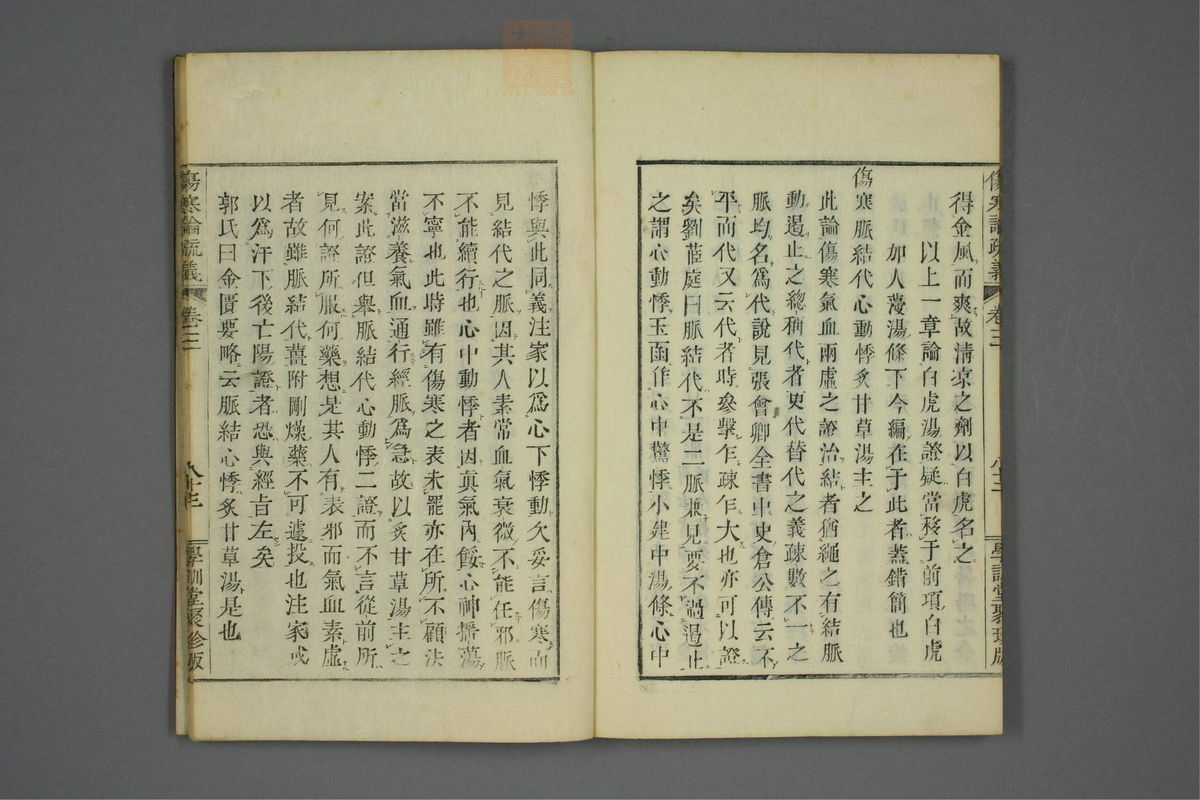 傷寒論疏義 卷三 學訓堂聚珍版
得金風而爽故清凉之劑以白虎名之
以上一章論白虎湯證疑當移于前項白虎
加人蓡湯條下今編在于此者蓋錯簡也
傷寒脈結代心動悸炙甘草湯主之
此論傷寒氣血兩虛之證治結者猶繩之有結脈
動遏止之總稱代者更代替代之義疎數不一之
脈均名爲代說見張會卿全書中史倉公傳云不
平而代又云代者時參擊乍疎乍大也亦可以證
矣劉茝庭曰脈結代不是二脈兼見要不過遏止
之謂心動悸玉函作心中驚悸小建中湯條心中
悸與此同義注家以爲心下悸動欠妥言傷寒而
見結代之脈因其人素常血氣衰微不能任邪脈
不能續行也心中動悸者因眞氣內餒心神搖蕩
不寧也此時雖有傷寒之表未罷亦在所不顧法
當滋養氣血通行經脈爲急故以炙甘草湯主之
案此證但舉脈結代心動悸二證而不言從前所
見何證所服何藥想是其人有表邪而氣血素虛
者故雖脈結代薑附剛燥藥不可遽投也注家或
以爲汗下後亡陽證者恐與經旨左矣
郭氏曰金匱要略云脈結心悸炙甘草湯是也
傷寒論疏義 卷三 八十三 學訓堂聚珍版